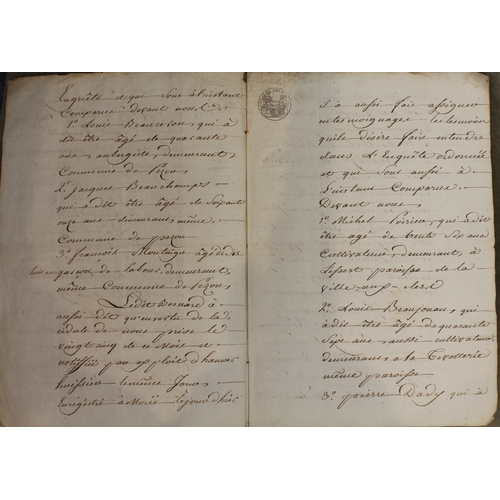 Enquête et qui sont à l'instant
Comparus devant nous
1.° Louis Beauceron, qui à
dit être âgé de quarante
ans, aubergiste, demeurant,
Commune de Pezou
2.° Jacques Beauchamps
qui à dit être âgé de soixante
onze ans demeurant, même
Commune de pezou
3.° francois Montaigu âgé de dix
garçon de labour, demeurant,
même Commune de Pezou,
Ledit Bernard à
aussi dit qu'en vertu de la
cédule de nous prise le
vingt cinq de ce Mois et
notifiée par exploit d'hamar
huissier le même Jour
Enregistré à Morée le jour d'hier
il à aussi fait assigner
en témoignages les témoins
qu'ils désire faire entendre
dans L'Enquête ordonnée
et qui sont aussi à
L'instant Comparus
Devant nous,
1.° Michel Poirier, qui à dit
être âgé de trente six ans
Cultivateur, demeurant, à
paroisse de la
ville-aux-clercs
2.° Louis Beaujouan, qui
à dit être âgé de quarante
sept ans, aussi cultivateur,
demeurant, à la
même paroisse
3.° pierre Dady qui à